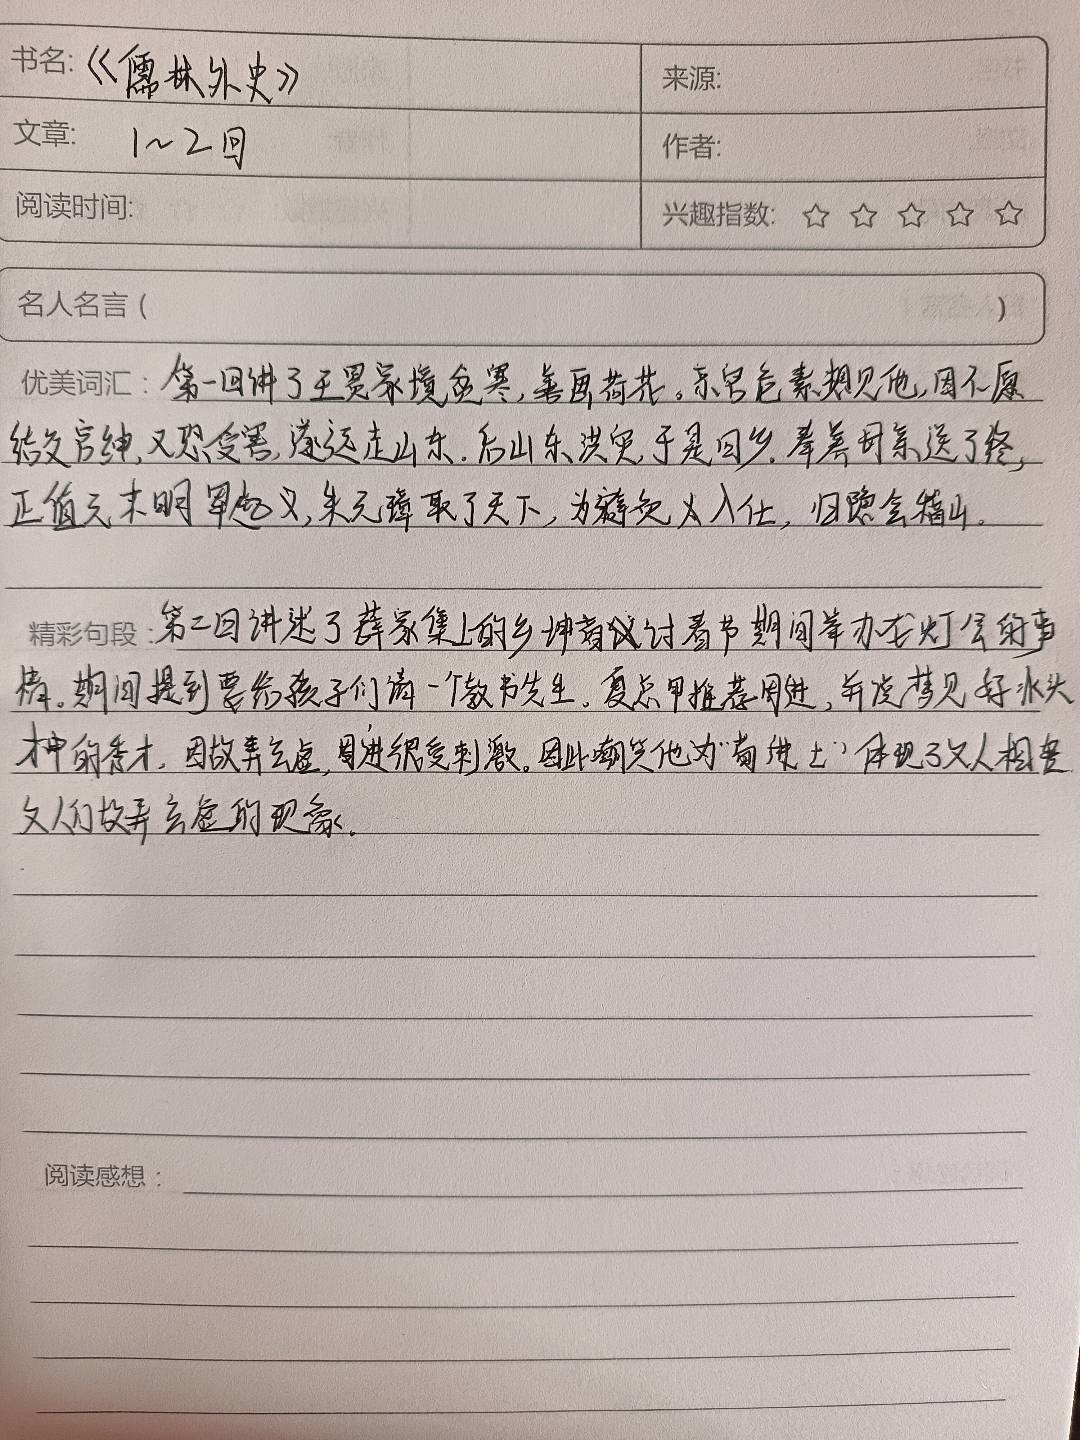 书名:《儒林外史》
来源:
文章: 1~2回
作者:
阅读时间:
兴趣指数: ☆ ☆ ☆ ☆ ☆
名人名言 ( )
优美词汇：第一回讲了王冕家境贫寒,善画荷花。京官危素想见他,因不愿
结交官绅,又恐受害,遂远走山东.后山东洪灾,于是回乡.奉养母亲送了终,
正值元末明军起义,朱元璋取了天下,为辞 入仕,归隐会稽山.
精彩句段：第二回讲述了薛家集上的乡绅商议讨春节期间举办龙灯会的事
情。期间提到要给孩子们请一个教书先生.夏总甲推荐周进,并说梦见
中的秀才,因故弄玄虚,周进很受刺激。因此嘲笑他为"荀进士"体现了文人相
文人们故弄玄虚的现象.
阅读感想：